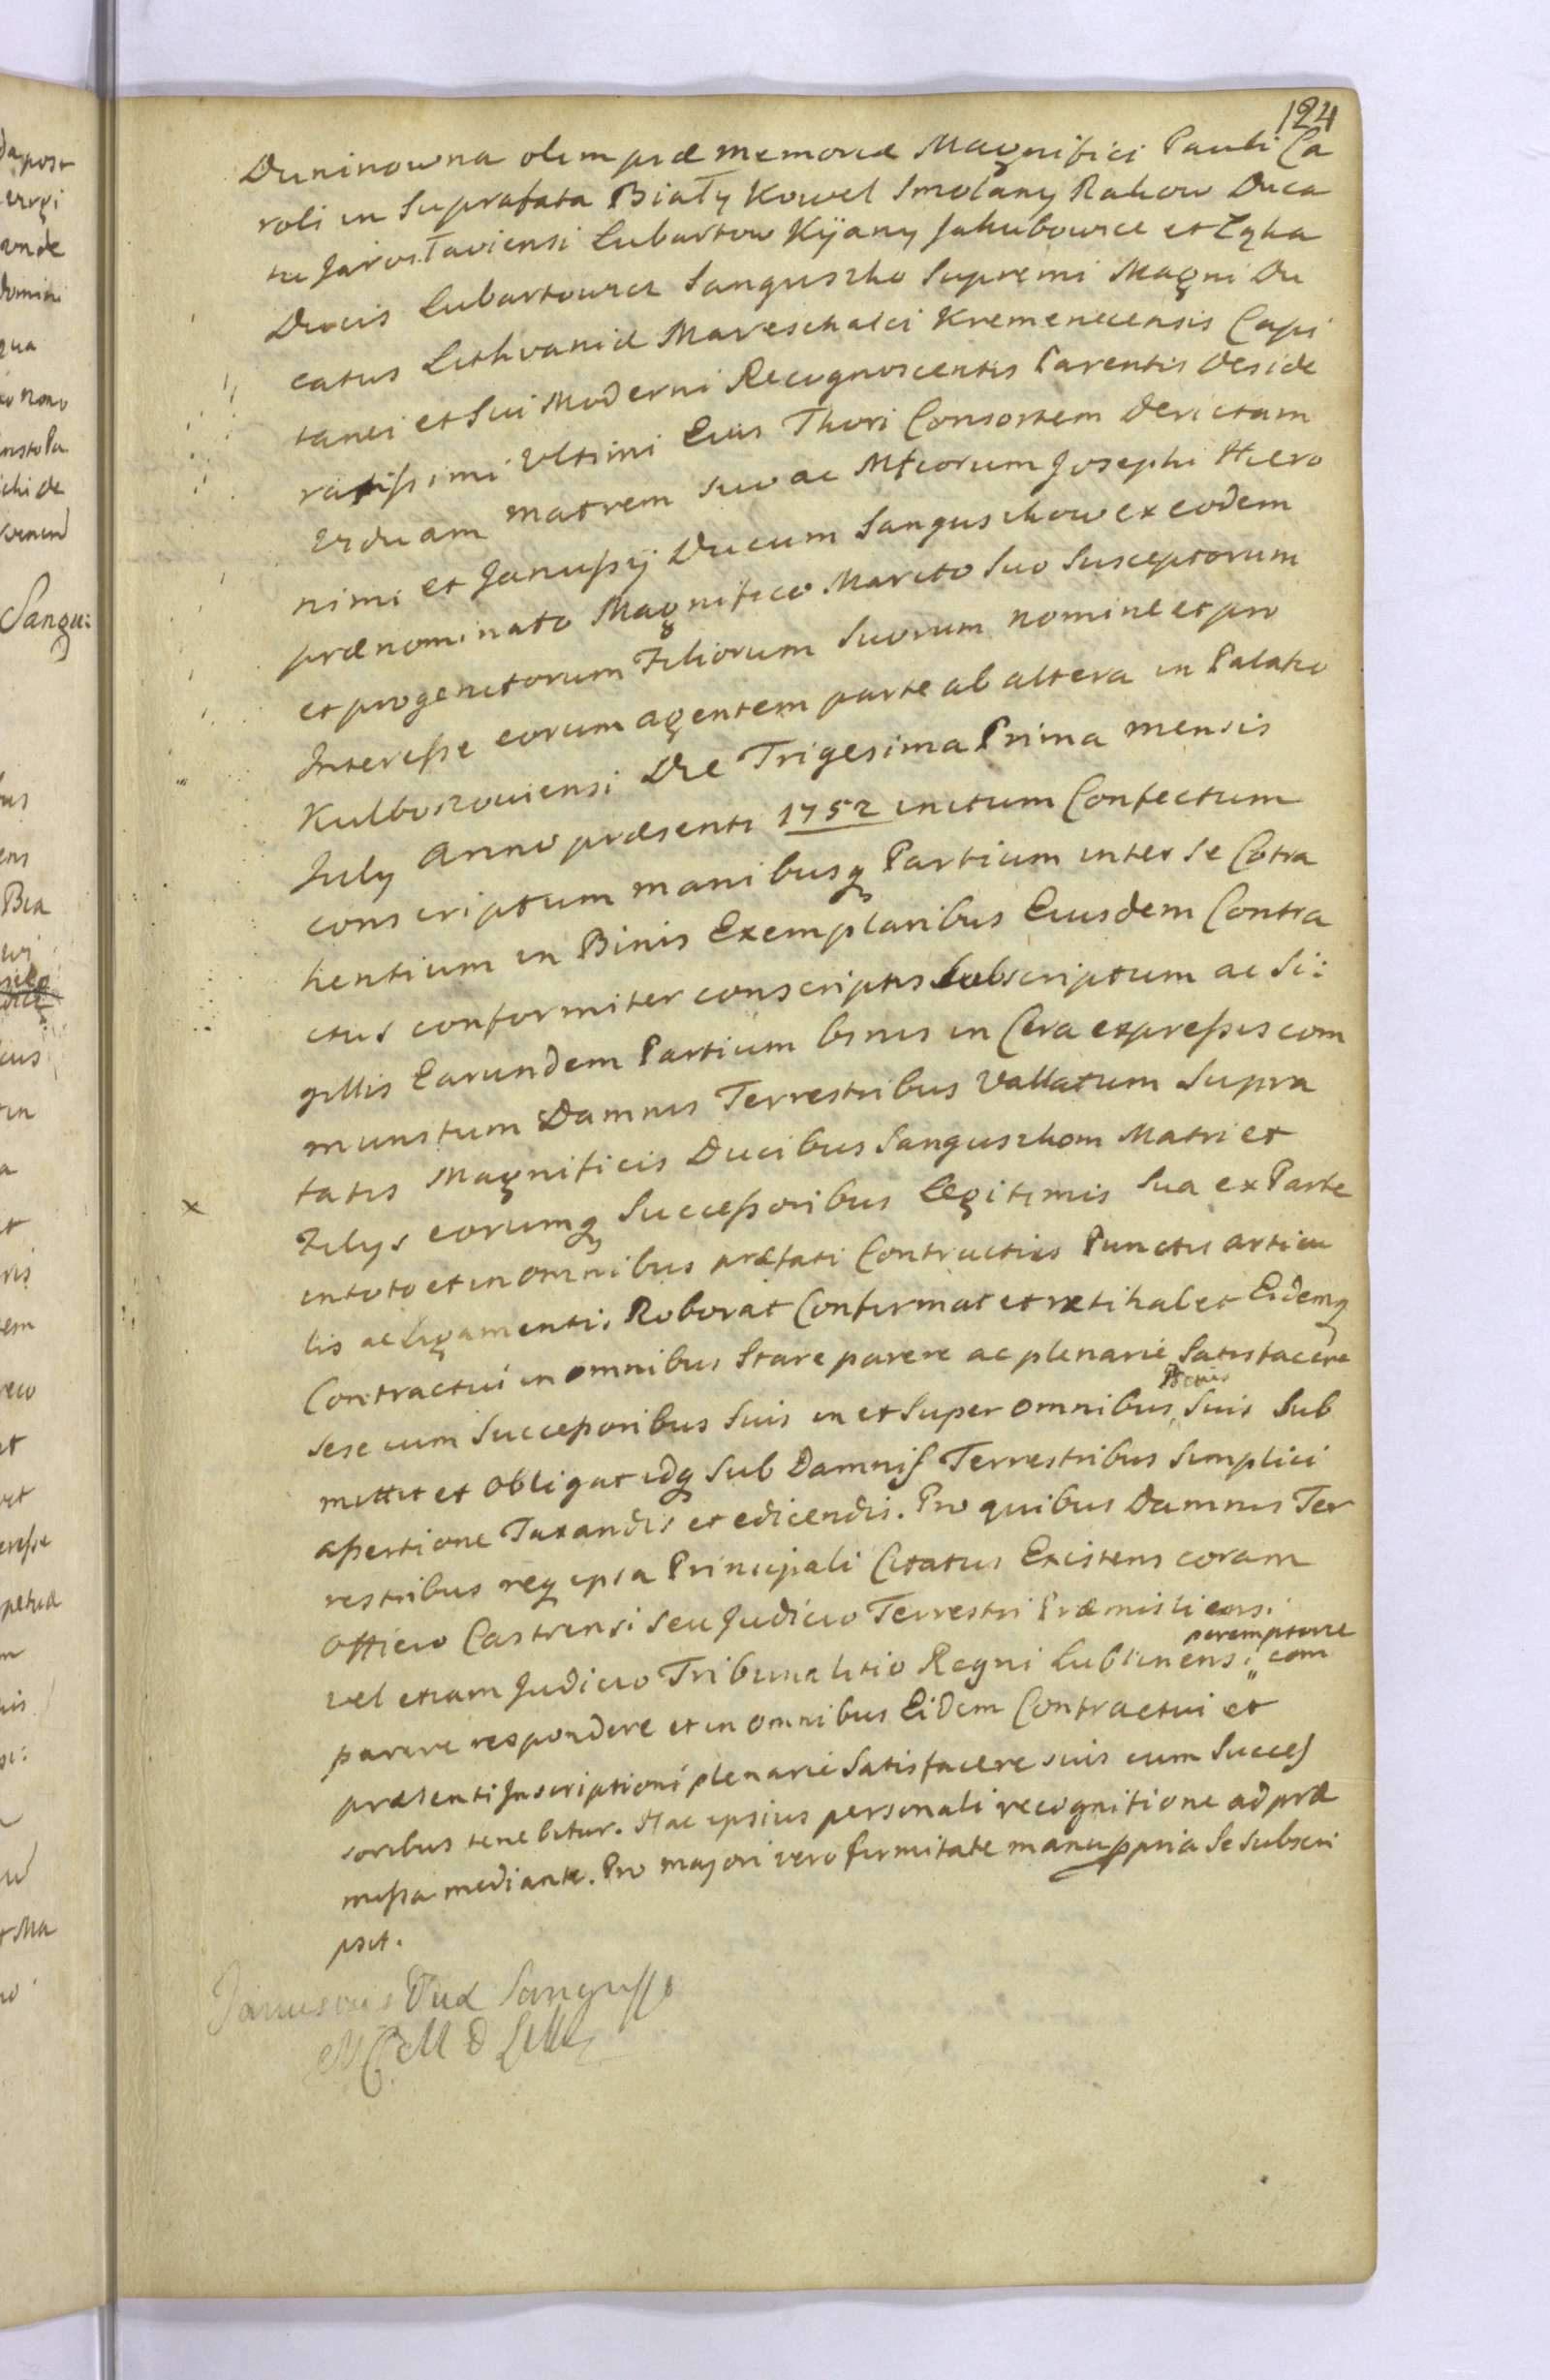 124
Duninowna olim piæ memoriæ Magnifici Pauli Ca
roli in Suprafata Biały Kowel Smolany Rakow Duca
tu Jarosłaviensi Lubartow Kÿany Jakubowice et Łąka
Ducis Lubartowicz Sanguszko Supremi Magni Du
catus Lithvaniæ Mareschalci Kremenecensis Capi
tanei et Sui Moderni Recognoscentis Parentis deside
ratissimi Ultimi Eius Thori Consortem derictam
Viduam matrem suo ac Mfcorum Josephi Hiero
nimi et Janussÿ Ducum Sanguszkow ex eodem
prænominato Magnifico Marito Suo Susceptorum
et progenitorum Filiorum Suorum nomine et pro
Interesse eorum agentem parte ab altera in Palatio
Kulbuszoviensi Die Trigesima Prima mensis
July Anno præsenti 1752 initum Confectum
conscriptum manibusq Partium inter se Cotra
hentium in Binis Exemplaribus Eiusdem Contra
ctus conformiter conscriptis Subscriptum ac Si:
gillis Earundem Partium binis in Cera expressis com
munitum Damnis Terrestribus Vallatum Supra
fatis Magnificis Ducibus Sanguszkom Matri et
Filys eorumq Successoribus Legitimis Sua ex Parte
in toto et in omnibus præfati Contractus Punctis articu
lis ac Ligamentis Roborat Confirmat et ratihabet Eidemq
Contractui in omnibus Stare parere ac plenarie Satisfacere
Sese cum Successoribus Suis in et Super omnibus Bonis Suis Sub
mittit et Obligat idq Sub Damnis Terrestribus Simplici
assertione Taxandis et edicendis. Pro quibus Damnis Ter
restribus req ipsa Principali Citatus Existens coram
Officio Castrensi seu Judicio Terrestri Præmisliensi
vel etiam Judicio Tribunalitio Regni Lublinensi peremptorie com
parere respondere et in omnibus Eidem Contractui et
præsenti Inscriptioni plenarie Satisfacere suis cum Succes
soribus tenebitur. Hac ipsius personali recognitione ad præ
missa mediante. Pro majori vero firmitate manu ppria Se Subscri
psit.
Janussius Dux Sangussko